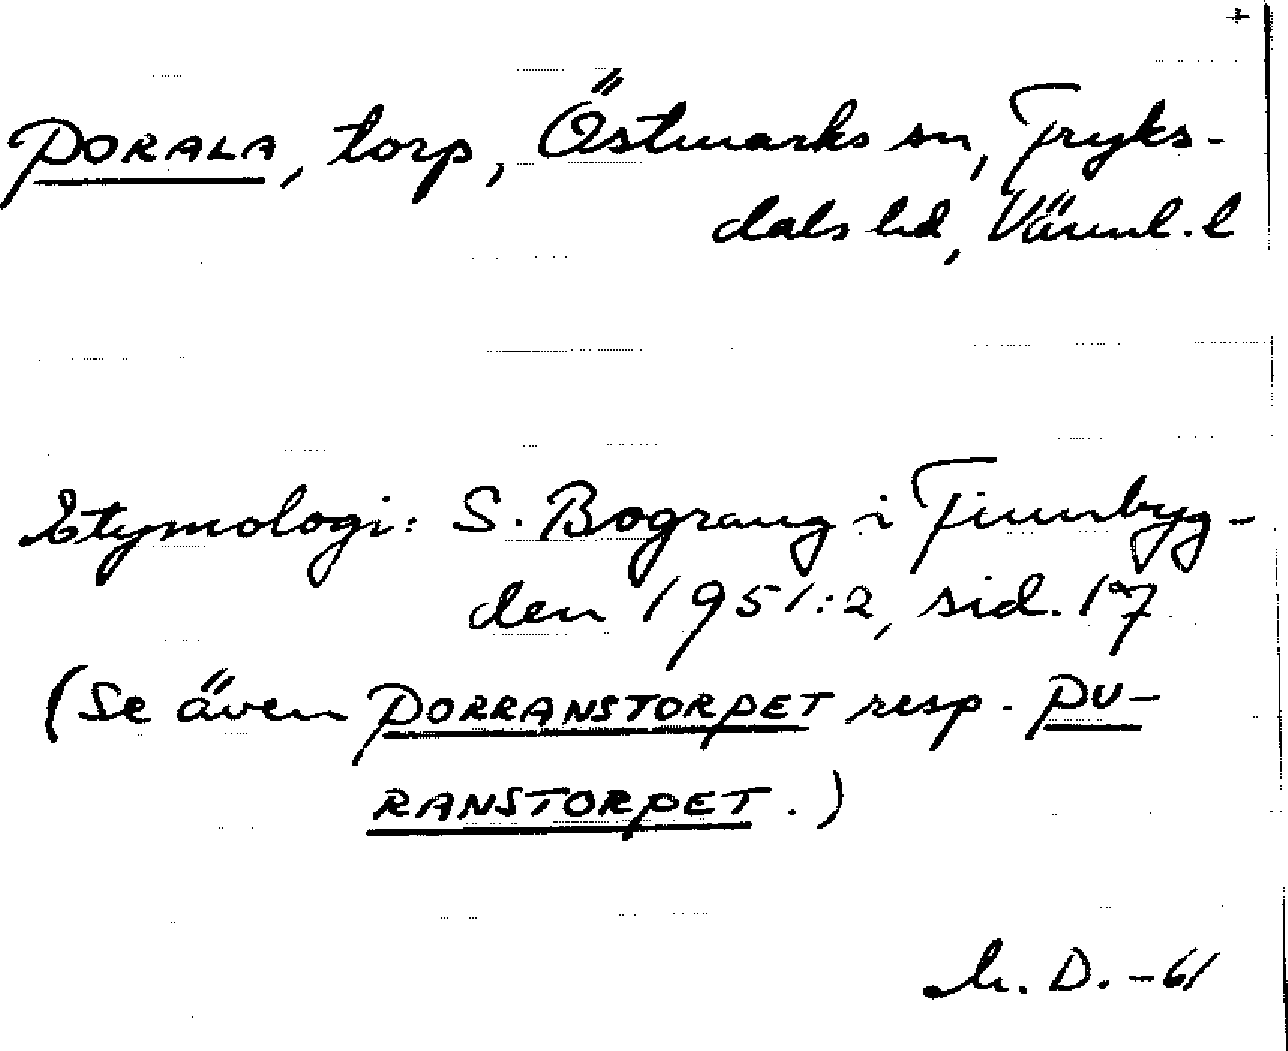 +
PORALA, torp, Östmarks sn, Fryks-
dals hd, Värml. l
Etymologi: S. Bograng i Finnbyg-
den 1951:2, sid. 17
(Se även PORRANSTORPET resp. PU-
RANSTORPET.)
D. -61